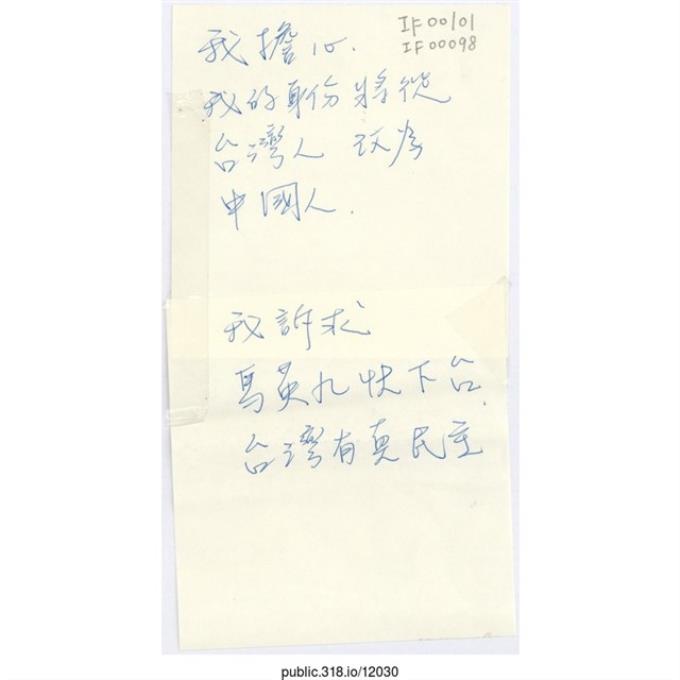 IF00101
IF00098
我擔心.
我的身份將從
台灣人 改為
中國人.
我訴求
馬英九快下台.
台灣有真民主
public.318.io/12030